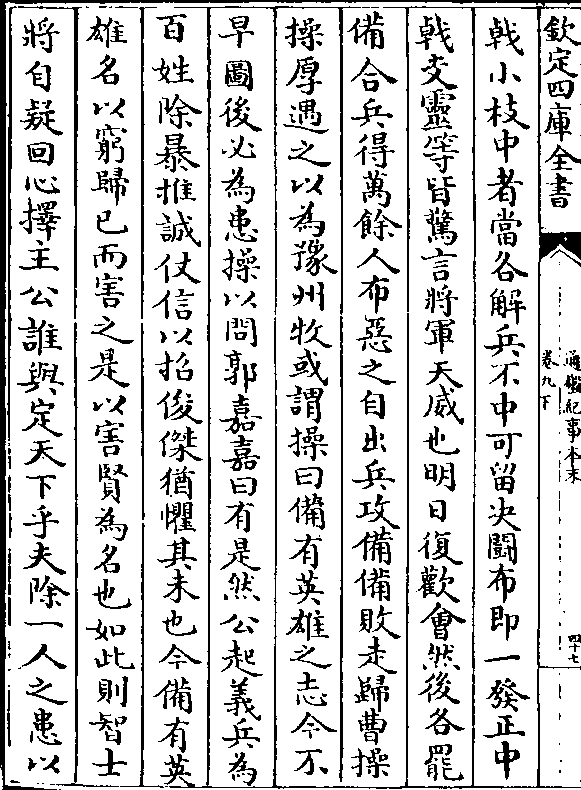 欽定四庫全書
通鑑紀事本末
卷九下
四十七
戟小枝中者當各解兵不中可留决鬬布即一發正中
戟支靈等皆驚言將軍天威也明日復歡會然後各罷
備合兵得萬餘人布惡之自出兵攻備備敗走歸曹操
操厚遇之以為豫州牧或謂操曰備有英雄之志今不
早圖後必為患操以問郭嘉嘉曰有是然公起義兵為
百姓除暴推誠仗信以招俊傑猶懼其未也今備有英
雄名以窮歸已而害之是以害賢為名也如此則智士
將自疑回心擇主公誰與定天下乎夫除一人之患以